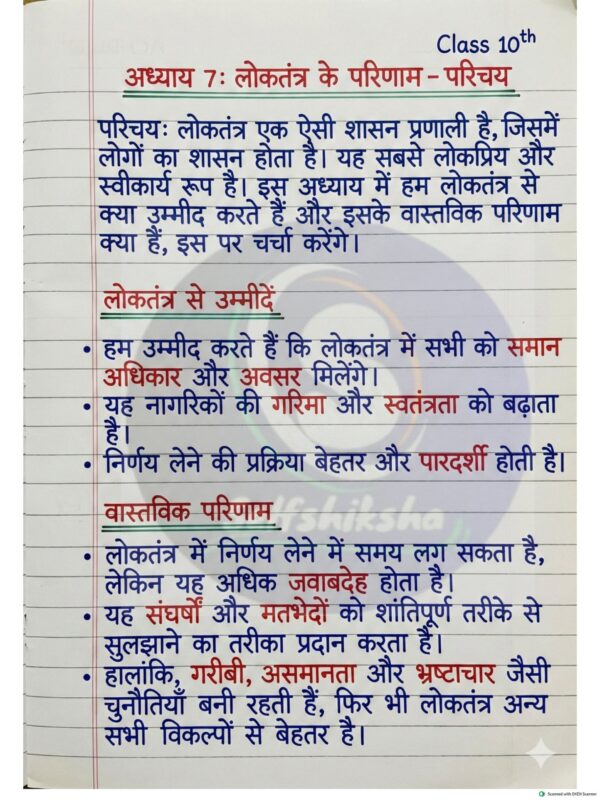 Class 10th
अध्याय 7: लोकतंत्र के परिणाम - परिचय
परिचय: लोकतंत्र एक ऐसी शासन प्रणाली है, जिसमें
लोगों का शासन होता है। यह सबसे लोकप्रिय और
स्वीकार्य रूप है। इस अध्याय में हम लोकतंत्र से
क्या उम्मीद करते हैं और इसके वास्तविक परिणाम
क्या हैं, इस पर चर्चा करेंगे।
लोकतंत्र से उम्मीदें
• हम उम्मीद करते हैं कि लोकतंत्र में सभी को समान
अधिकार और अवसर मिलेंगे।
• यह नागरिकों की गरिमा और स्वतंत्रता को बढ़ाता
है।
• निर्णय लेने की प्रक्रिया बेहतर और पारदर्शी होती है।
वास्तविक परिणाम
• लोकतंत्र में निर्णय लेने में समय लग सकता है,
लेकिन यह अधिक जवाबदेह होता है।
• यह संघर्षों और मतभेदों को शांतिपूर्ण तरीके से
सुलझाने का तरीका प्रदान करता है।
• हालांकि, गरीबी, असमानता और भ्रष्टाचार जैसी
चुनौतियाँ बनी रहती हैं, फिर भी लोकतंत्र अन्य
सभी विकल्पों से बेहतर है।
Scanned with OKEN Scanner